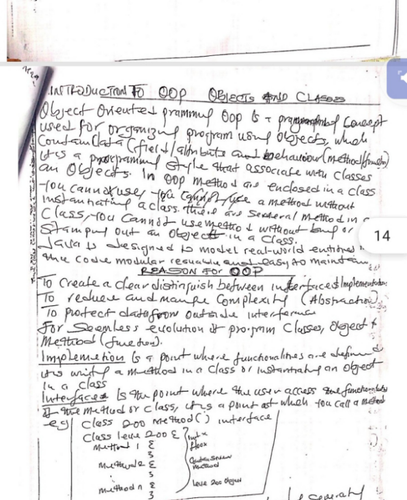 INTRODUCTION TO OOP OBJECTS AND CLASSES
Object Oriented OOP is a programming Concept
used for organizing program using Objects, which
Contain data (field/attribute and behaviour (method/function)
It is a programming Style that associate with Classes
an Objects. In OOP method are enclosed in a class
You cannot use, use a method without
instantiating a class. there are several method in a
Class, You Cannot use method without
out an Object in a Class.
Java is designed to model real-world entities
code modular reusable and easy to maintain
REASON FOR OOP
To create a clear distinguish between interface & Implementation
To reduce and manage Complexity (Abstraction)
To protect data from outside interference
For Seemless evolution of program Classes, Object &
Method (function).
Implemetion is a point where functionalities are define
It is a method in a Class or instantiating an object
in a class
Interface is the point where the user access the functionalities
the method or class, it is a point at which you call a method
eg Class 200 method() interface
Class leve 200 {
method 1 {
}
method 2 {
}
method n {
}
leve 200 object
14